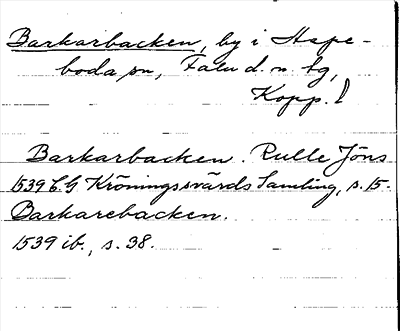 Barkarbacken, by i Aspe-
boda sn, Falu d. n. tg,
Kopp. l
Barkarbacken. Pulle Jöns
1539 C.G Kröningssvärds Samling, s. 15.
Barkarebacken.
1539 ib., s. 38.